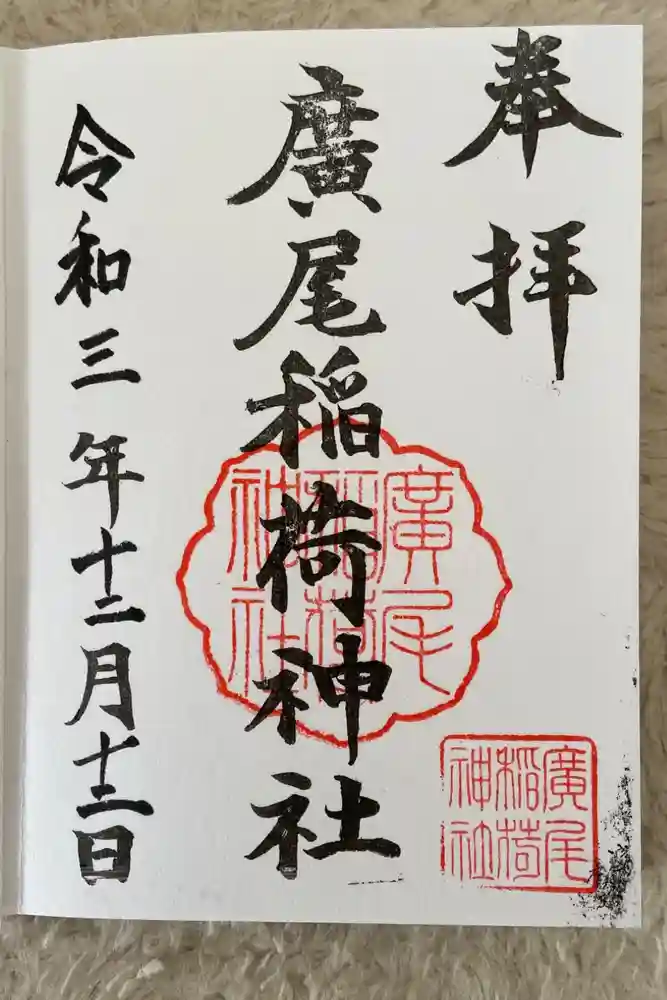 奉拝
廣尾稲荷神社
令和三年十二月十三日
廣尾
稲荷
神社
廣尾
稲荷
神社